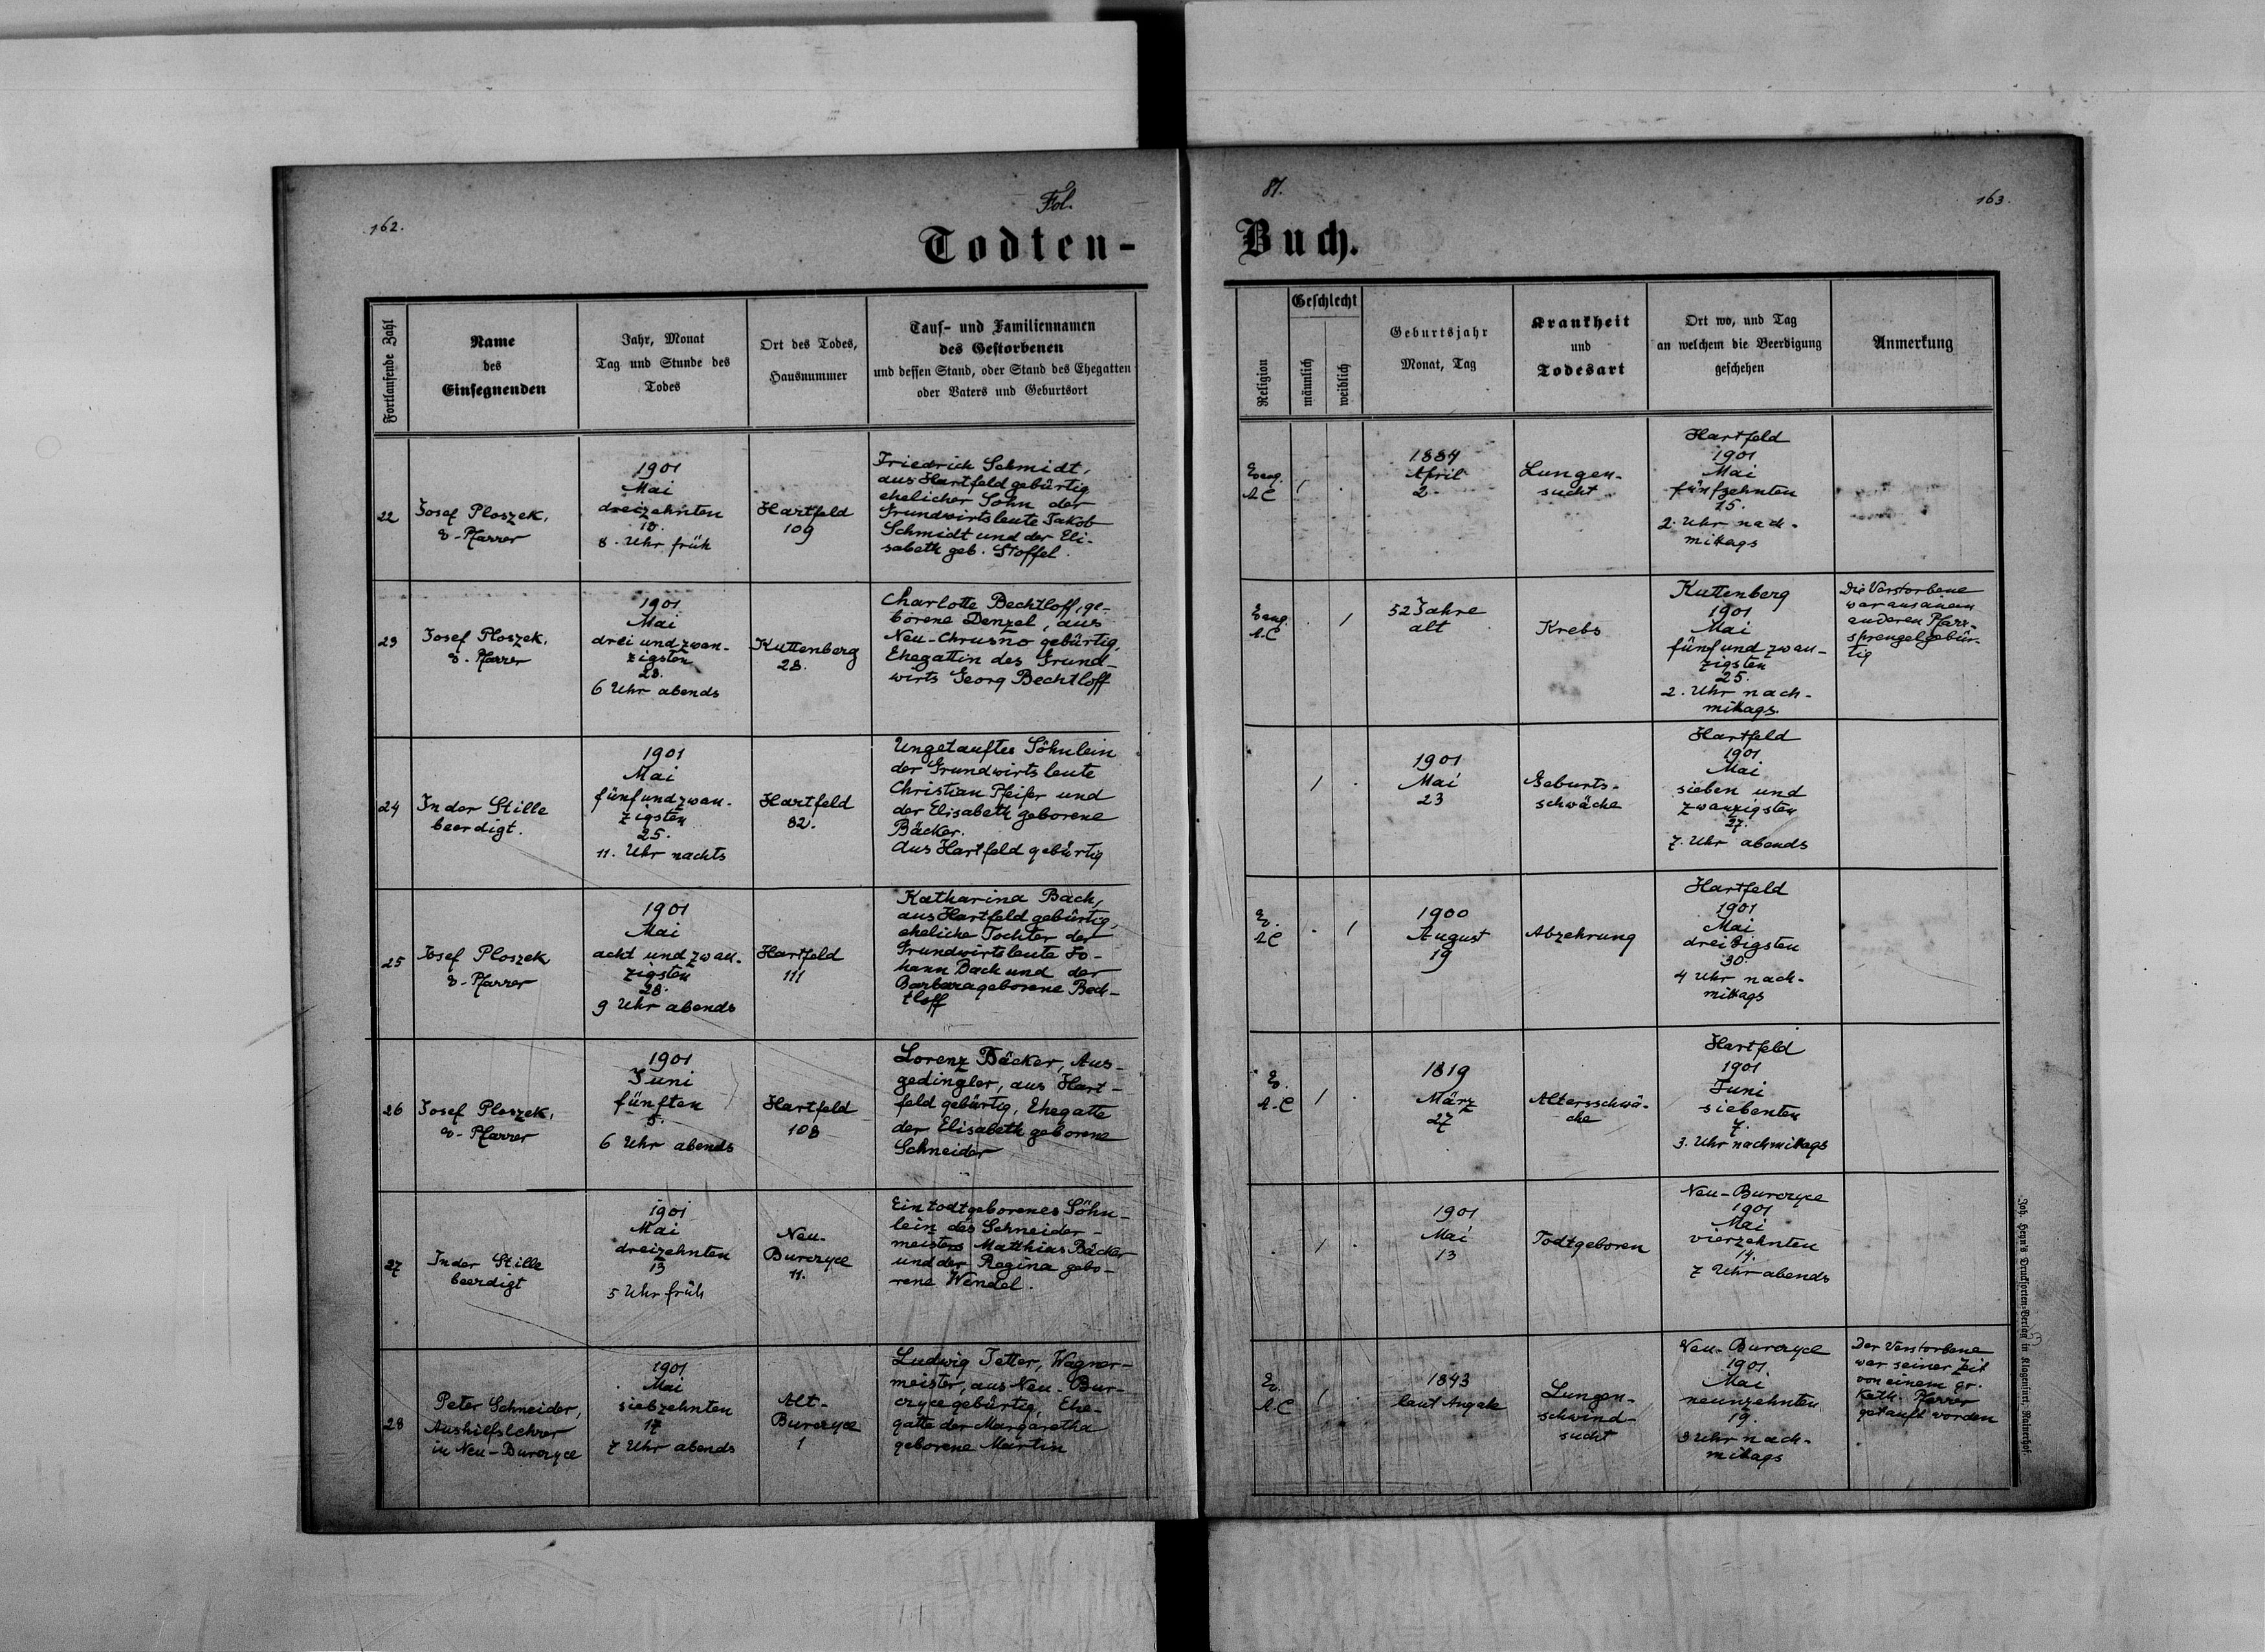 162.
Fol.
81.
163.
Todten-
Buch.
Fortlaufende Zahl
Name
des
Einsegnenden
Jahr, Monat
Tag und Stunde des
Todes
Ort des Todes,
Hausnummer
Tauf- und Familiennamen
des Gestorbenen
und dessen Stand, oder Stand des Ehegatten
oder Vaters und Geburtsort
Religion
Geschlecht
männlich
weiblich
Geburtsjahr
Monat, Tag
Krankheit
und
Todesart
Ort wo, und Tag
an welchem die Beerdigung
geschehen
Anmerkung
22
Josef Ploszek,
ev. Pfarrer
1901
Mai
dreizehnten
8. Uhr früh
Hartfeld
109
Friedrich Schmidt,
aus Hartfeld gebürtig
ehelicher Sohn der
Grundwirtsleute Jakob
Schmidt und der Eli-
sabeth geb. Stoffel.
Evang.
A C
1884
April
2.
Lungen-
sucht
Hartfeld
1901
Mai
fünfzehnten
2. Uhr nach-
mittags
23
Josef Ploszek,
ev. Pfarrer
1901
Mai
drei und zwan-
zigsten
6 Uhr abends
Kuttenberg
28.
Charlotte Bechtloff, ge-
borene Denzel, aus
Neu-Chrusno gebürtig,
Ehegattin des Grund-
wirts Georg Bechtloff
Evang.
A.C
1
52 Jahre
alt
Krebs
Kuttenberg
1901
Mai
fünf und zwan-
zigsten
25.
2. Uhr nach-
mittags.
Die Verstorbene
war aus einem
anderen Pfarr-
sprengel gebür-
tig
24
In der Stille
beerdigt.
1901
Mai
fünf und zwan-
zigsten
25.
11. Uhr nachts
Hartfeld
82.
Ungetauftes Söhnlein
der Grundwirtsleute
Christian Pfeifer und
der Elisabeth geborene
Bäcker.
Aus Hartfeld gebürtig
1
1901
Mai
23
Geburts-
schwäche
Hartfeld
1901
Mai
sieben und
zwanzigsten
27.
7. Uhr abends
25
Josef Ploszek
ev. Pfarrer
1901
Mai
acht und zwan-
zigsten
28.
9 Uhr abends
Hartfeld
111
Katharina Bach,
aus Hartfeld gebürtig,
eheliche Tochter der
Grundwirtsleute Jo-
hann Bach und der
Barbara geborene Bech-
tloff
Ev.
A C
1
1900
August
19
Abzehrung
Hartfeld
1901
Mai
dreißigsten
30.
4 Uhr nach-
mittags
26
Josef Ploszek,
ev. Pfarrer
1901
Juni
fünften
5.
6 Uhr abends
Hartfeld
108
Lorenz Bäcker, Aus-
gedingler, aus Hart-
feld gebürtig, Ehegatte
der Elisabeth geborene
Schneider
Ev.
A.C
1
1819
März
27
Altersschwä-
che
Hartfeld
1901
Juni
siebenten
7.
3. Uhr nachmittags
27
In der Stille
beerdigt
1901
Mai
dreizehnten
13
5 Uhr früh
Neu-
Burczyce
11.
Ein todtgeborenes Söhn-
lein des Schneider-
meisters Matthias Bäcker
und der Regina gebo-
rene Wendel.
1
1901
Mai
13
Todtgeboren
Neu-Burczyce
1901
Mai
vierzehnten
14.
7 Uhr abends
28
Peter Schneider,
Aushilfslehrer
in Neu-Burczyce
1901
Mai
siebzehnten
17
7 Uhr abends
Alt-
Burczyce
1
Ludwig Jetter, Wagner-
meister, aus Neu-Bur-
czyce gebürtig, Ehe-
gatte der Margaretha
geborene Martin
Ev.
A.C
1
1843
laut Angabe
Lungen-
schwind-
sucht
Neu-Burczyce
1901
Mai
neunzehnten
19.
3 Uhr nach-
mittags
Der Verstorbene
war seiner Zeit
von einem gr.
Kath. Pfarrer
getauft worden
Joh. Heyn's Drucksorten-Verlag in Klagenfurt, Rainerhof.